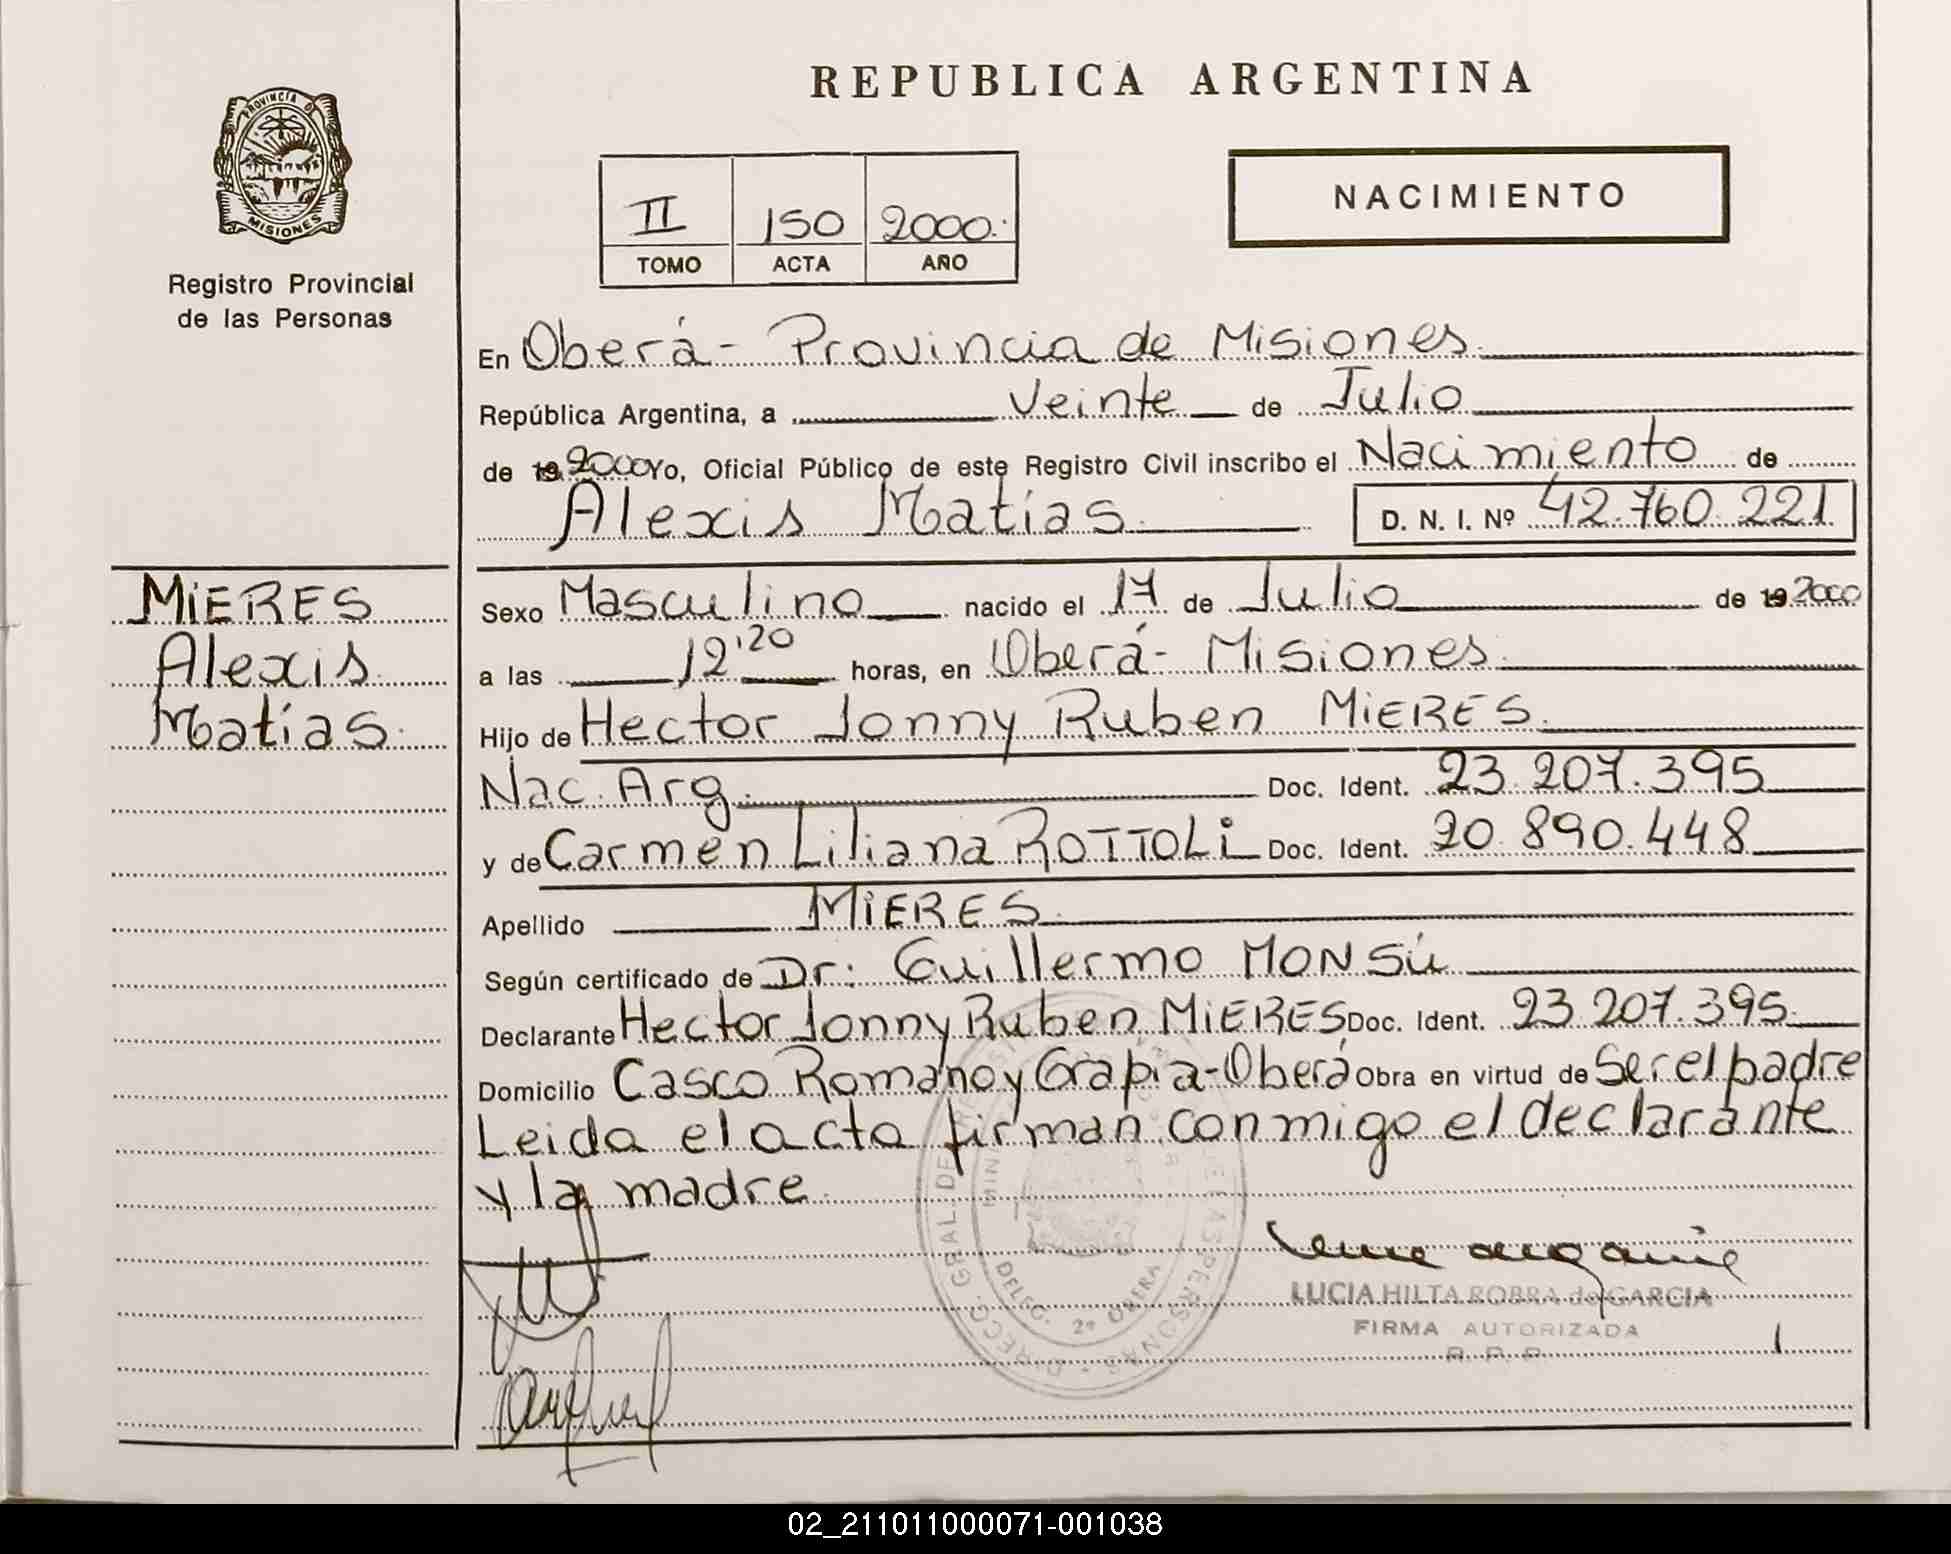 REPUBLICA ARGENTINA
PROVINCIA DE
MISIONES
Registro Provincial
de las Personas
II 150 2000.
TOMO ACTA AÑO
NACIMIENTO
En Oberá - Provincia de Misiones
República Argentina, a Veinte de Julio
de 19 2000 Yo, Oficial Público de este Registro Civil inscribo el Nacimiento de
Alexis Matías D. N. I. Nº 42.760.221
MiERES
Alexis
Matías.
Sexo Masculino nacido el 17 de Julio de 19 2000
a las 12'20 horas, en Oberá - Misiones
Hijo de Hector Jonny Ruben MiERES.
Nac. Arg. Doc. Ident. 23.207.395
y de Carmen Liliana ROTTOLi Doc. Ident. 20.890.448
Apellido MiERES
Según certificado de Dr: Guillermo MONSú
Declarante Hector Jonny Ruben MiERES Doc. Ident. 23.207.395
Domicilio Casco Romano y Grapia-Oberá Obra en virtud de Ser el padre
Leida el acta firman conmigo el declarante
y la madre
DELEG. 2ª OBERA
DIRECC. GRAL. DE
LAS PERSONAS
LUCIA HILTA ROBRA de GARCIA
FIRMA AUTORIZADA
R. P. P.
02_211011000071-001038